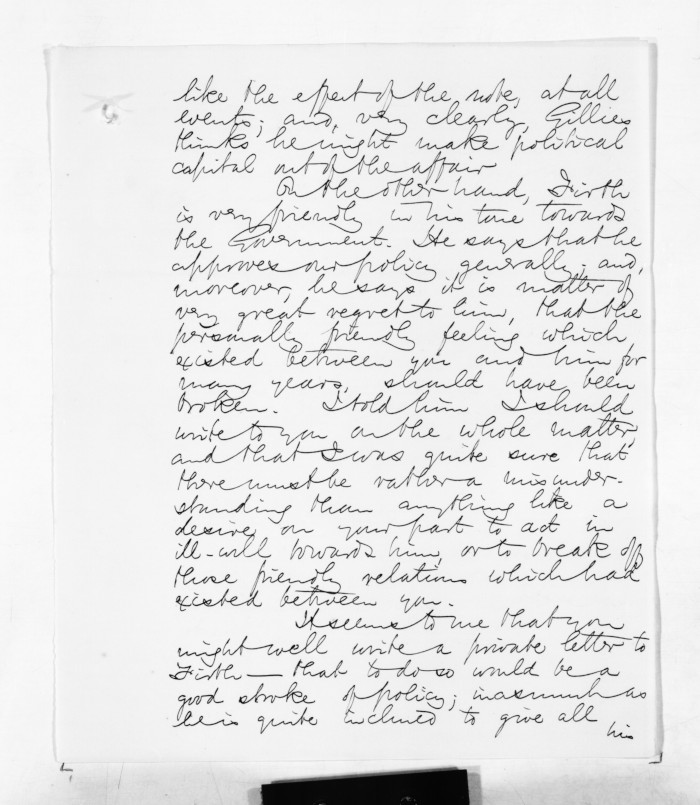 like the effect of the note, at all
events; and, very clearly, Gillies
thinks he might make political
capital out of the affair
On the other hand, Firth
is very friendly in his tone towards
the Government. He says that he
approves our policy generally; and,
moreover, he says it is matter of
very great regret to him, that the
personally friendly feeling which
existed between you and him for
many years, should have been
broken. I told him I should
write to you on the whole matter,
and that I was quite sure that
there must be rather a misunder-
standing than anything like a
desire on your part to act in
ill-will towards him, or to break off
those friendly relations which had
existed between you.
It seems to me that you
might well write a private letter to
Firth — that to do so would be a
good stroke of policy; inasmuch as
he is quite inclined to give all
his